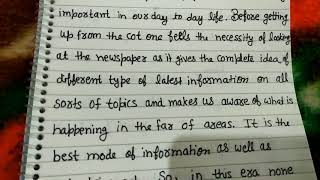 important in our day to day life. Before getting
up from the cot one fells the necessity of looking
at the newspaper as it gives the complete idea of
different type of latest information on all
sorts of topics and makes us aware of what is
happening in the far of areas. It is the
best mode of information as well as
So, in this era none